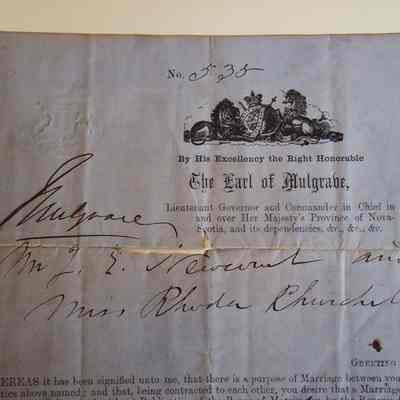 No. 535
By His Excellency the Right Honorable
The Earl of Mulgrave,
Lieutenant Governor and Commander in Chief in
and over Her Majesty's Province of Nova-
Scotia, and its dependencies, &c., &c., &c.
Mulgrave
Mr J. E. Newcomb and
Miss Rhoda Churchil
GREETING
EREAS it has been signified unto me, that there is a purpose of Marriage between you
ties above named; and that, being contracted to each other, you desire that a Marriage